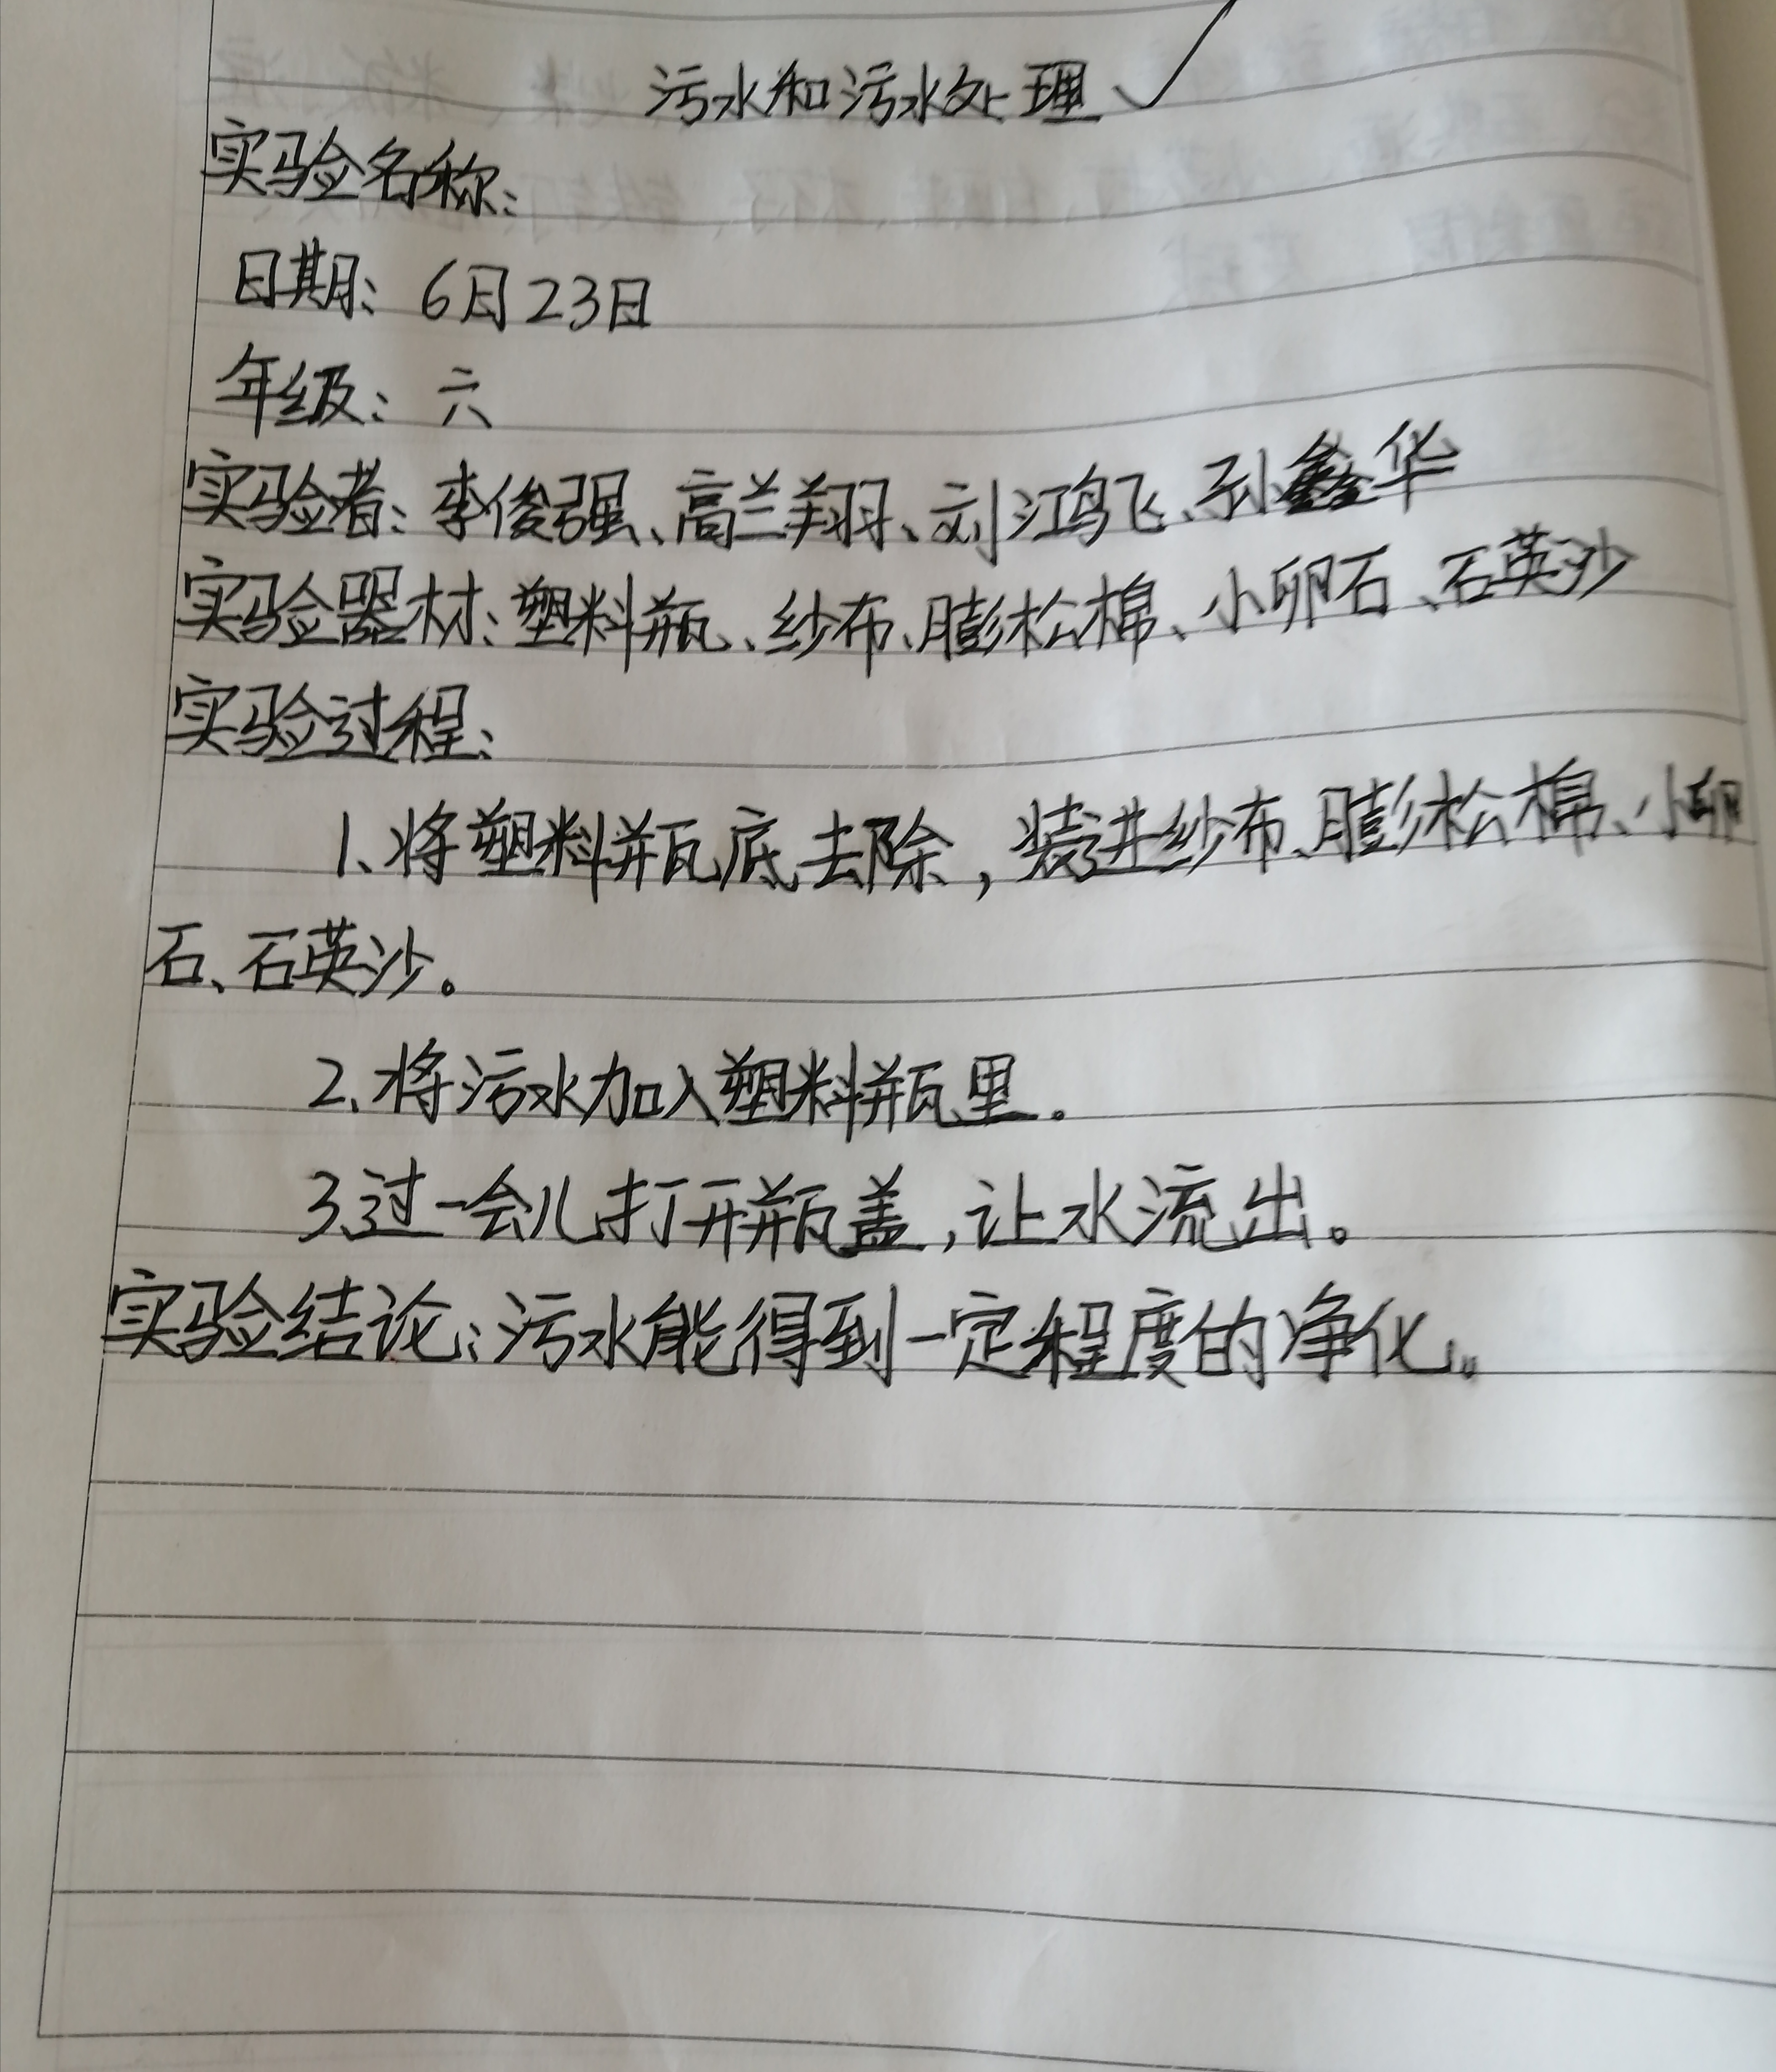 污水和污水处理
实验名称:
日期: 6月23日
年级: 六
实验者: 李俊强、高兰翔、刘鸿飞、孙鑫华
实验器材: 塑料瓶、纱布、膨松棉、小卵石、石英沙
实验过程:
1、将塑料瓶底去除,装进纱布、膨松棉、小卵
石、石英沙。
2、将污水加入塑料瓶里。
3、过一会儿打开瓶盖,让水流出。
实验结论: 污水能得到一定程度的净化。